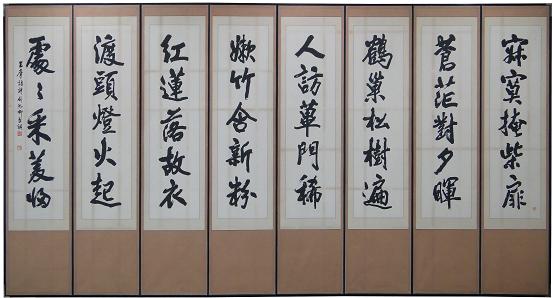 寂寞掩柴扉
蒼茫對夕暉
鶴巢松樹遍
人訪蓽門稀
嫩竹含新粉
紅蓮落故衣
渡頭燈火起
處〻采菱歸